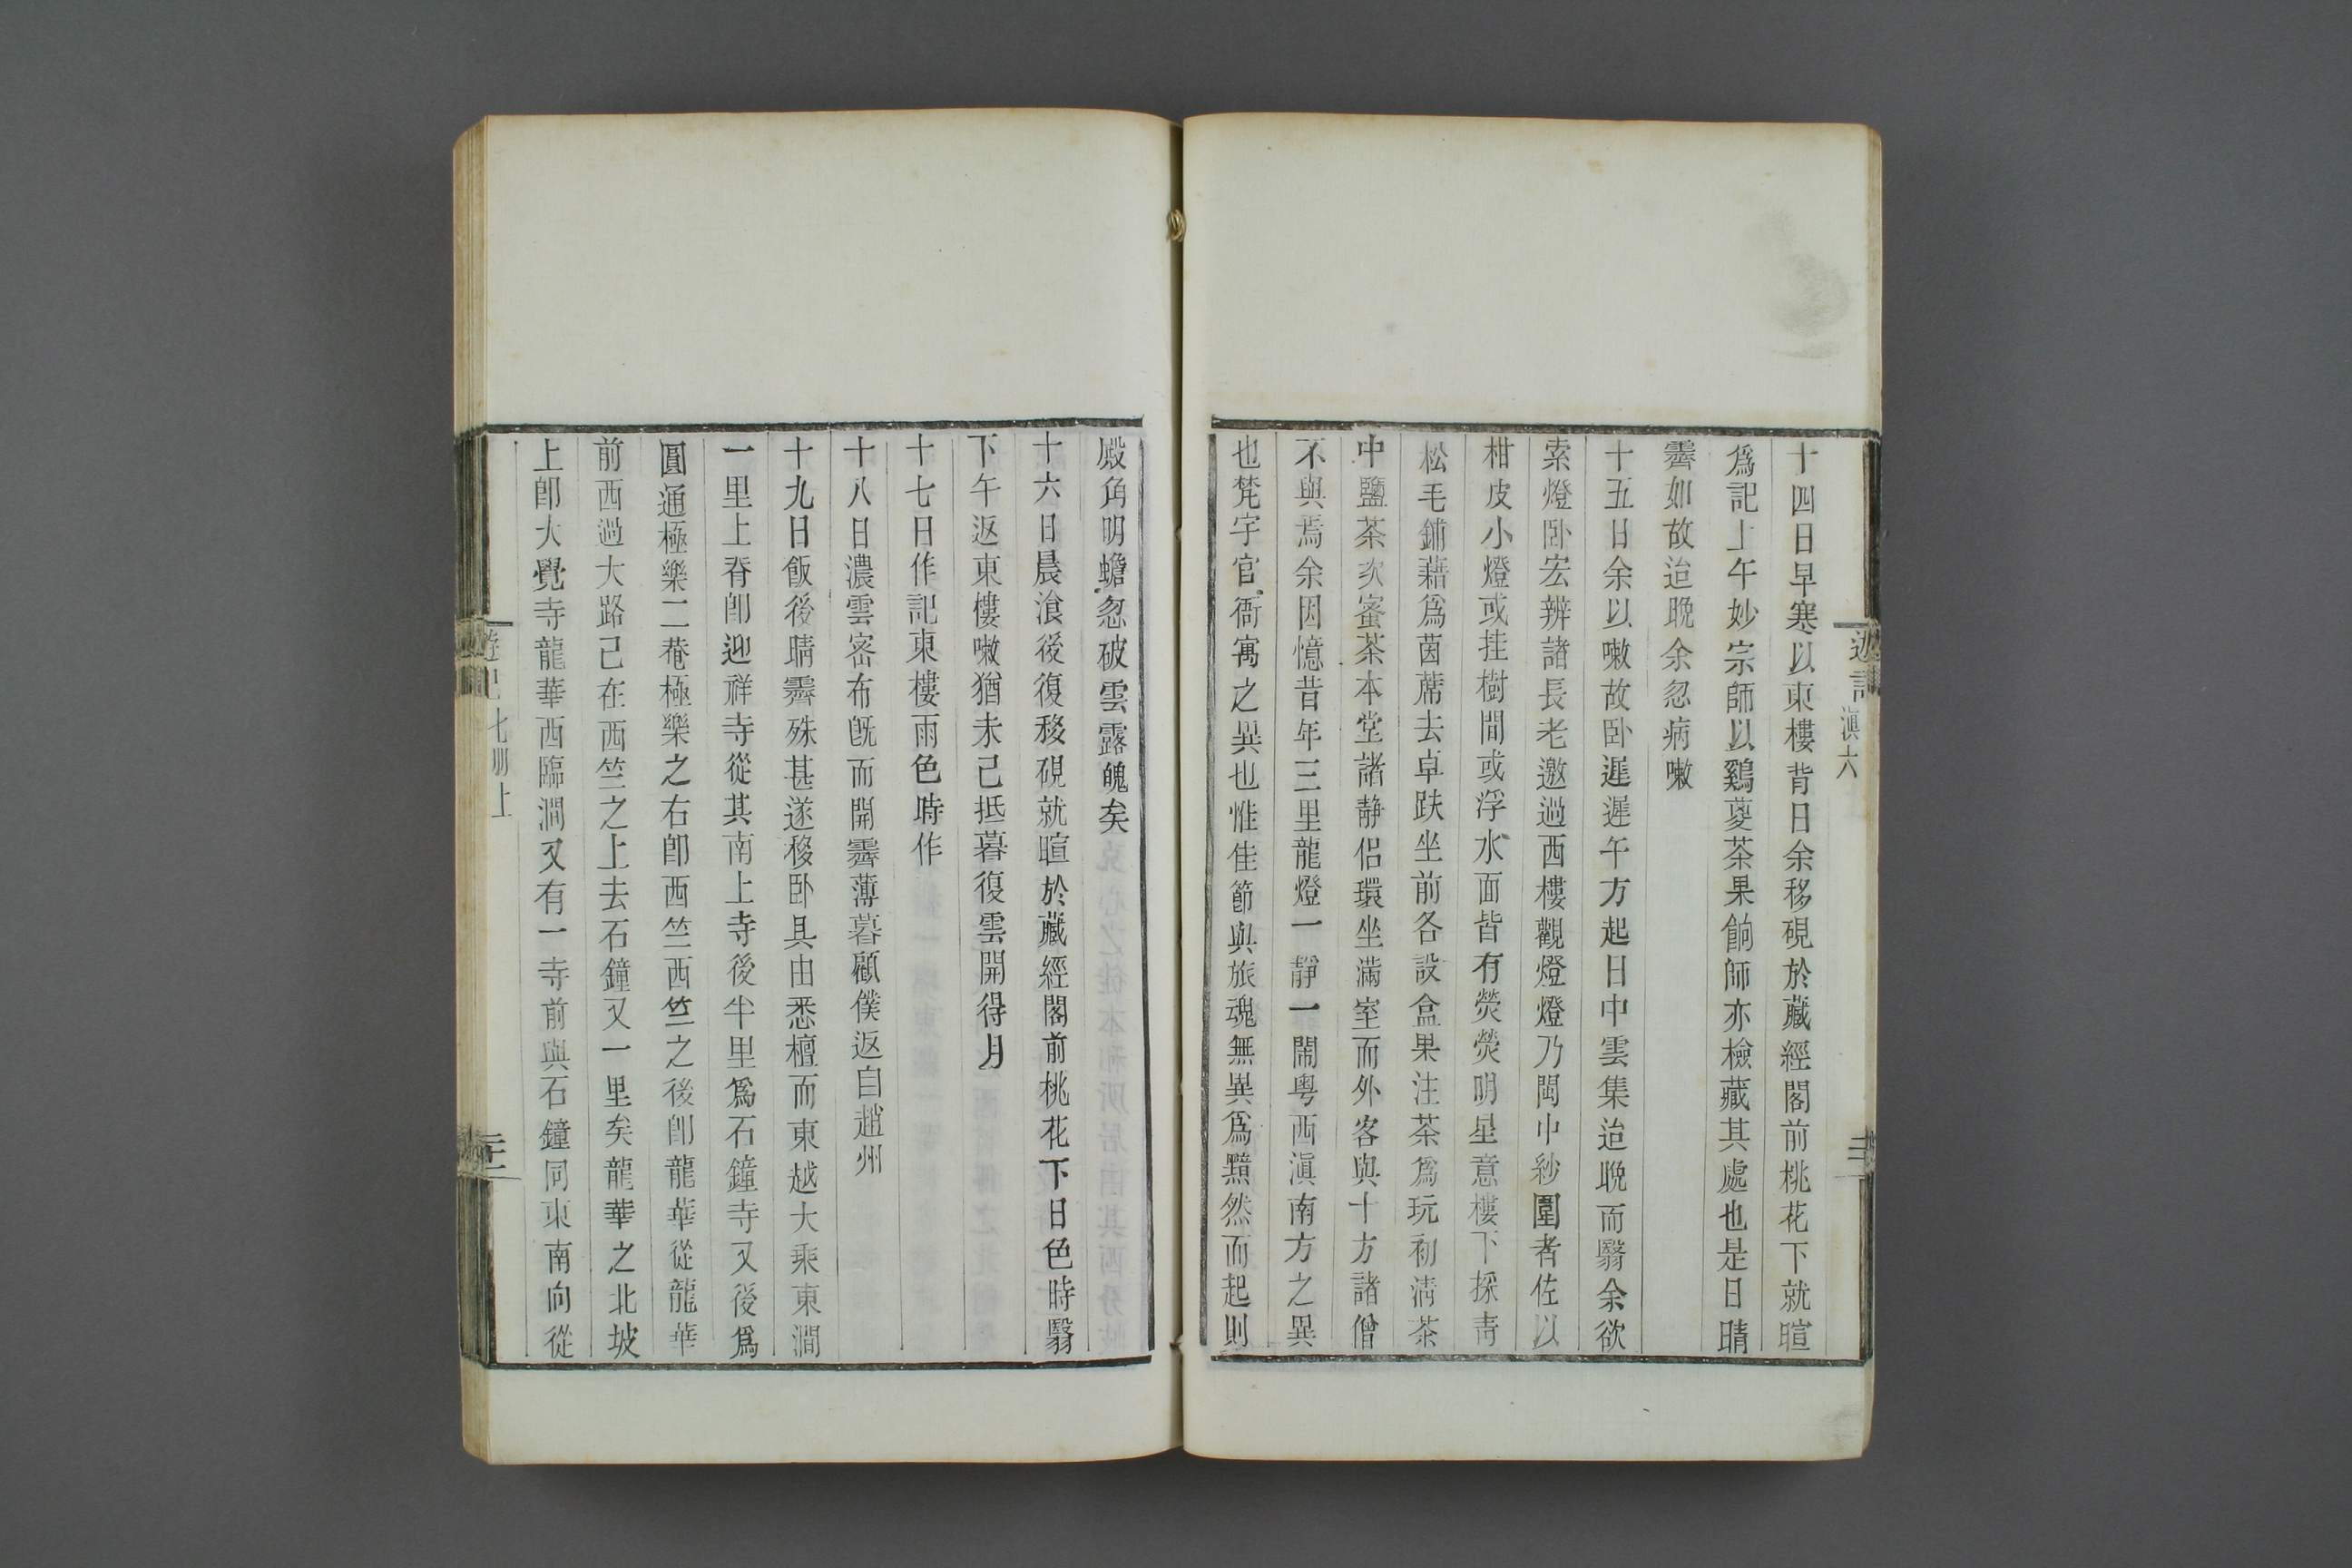 遊記
滇六
十四日早寒以東樓背日余移硯於藏經閣前桃花下就暄
爲記上午妙宗師以鷄㙡茶果餉師亦檢藏其處也是日晴
霽如故迨晚余忽病嗽
十五日余以嗽故卧遲遲午方起日中雲集迨晚而翳余欲
索燈卧宏辨諸長老邀過西樓觀燈燈乃閩中紗圍者佐以
柑皮小燈或挂樹間或浮水面皆有熒熒明星意樓下採青
松毛鋪藉爲茵蓆去卓趺坐前各設盒果注茶爲玩初淸茶
中鹽茶次蜜茶本堂諸靜侶環坐滿室而外客與十方諸僧
不與焉余因憶昔年三里龍燈一靜一鬧粤西滇南方之異
也梵宇官衙寓之異也惟佳節與旅魂無異爲黯然而起則
殿角明蟾忽破雲露魄矣
十六日晨湌後復移硯就暄於藏經閣前桃花下日色時翳
下午返東樓嗽猶未已抵暮復雲開得月
十七日作記東樓雨色時作
十八日濃雲密布旣而開霽薄暮顧僕返自趙州
十九日飯後晴霽殊甚遂移卧具由悉檀而東越大乘東澗
一里上脊卽迎祥寺從其南上寺後半里爲石鐘寺又後爲
圓通極樂二菴極樂之右卽西竺西竺之後卽龍華從龍華
前西過大路已在西竺之上去石鐘又一里矣龍華之北坡
上卽大覺寺龍華西臨澗又有一寺前與石鐘同東南向從
遊記
七册上